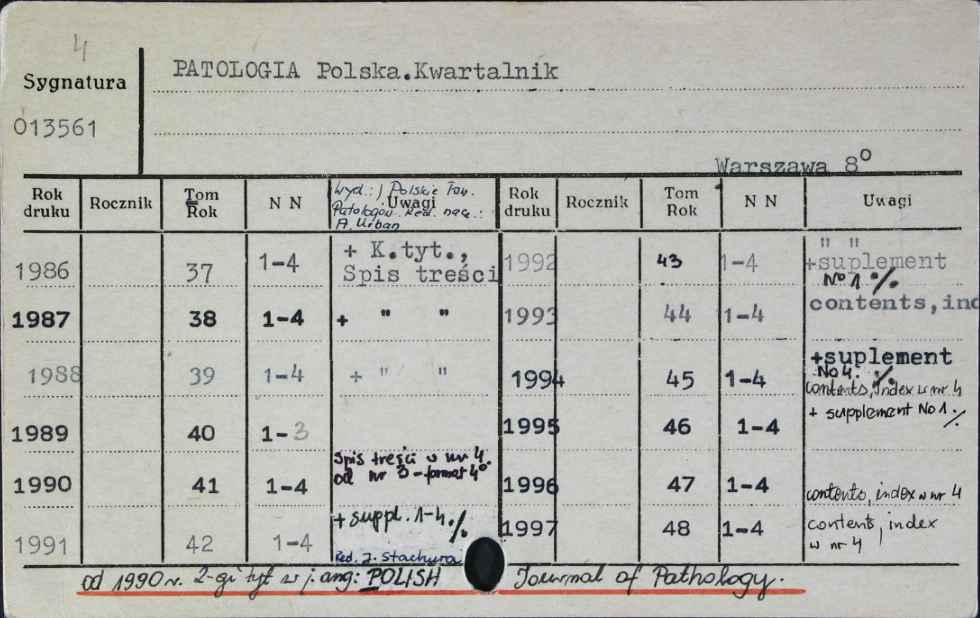 4
Sygnatura
013561
PATOLOGIA Polska.Kwartalnik
Warszawa 8o
Rok druku
Rocznik
Tom Rok
N N
Uwagi
Wyd.: Polskie Tow.
Patologów. Red. nacz.:
A. Urban
1986 37 1-4 + K.tyt.,
Spis treści
1987 38 1-4 + " "
1988 39 1-4 + " "
1989 40 1-3
1990 41 1-4 Spis treści w nr 4.
od nr 3 - format 4o
1991 42 1-4 + suppl. 1-4 ./.
Red. J. Stachura
Rok druku
Rocznik
Tom Rok
N N
Uwagi
" "
1992 43 1-4 +suplement
No 1 ./.
1993 44 1-4 contents,ind
+suplement
No 4. ./.
1994 45 1-4 contents, index w nr 4
+ supplement No 1 ./.
1995 46 1-4
1996 47 1-4 contents, index w nr 4
1997 48 1-4 contents, index
w nr 4
od 1990 r. 2-gi tyt w j. ang: POLISH Journal of Pathology.